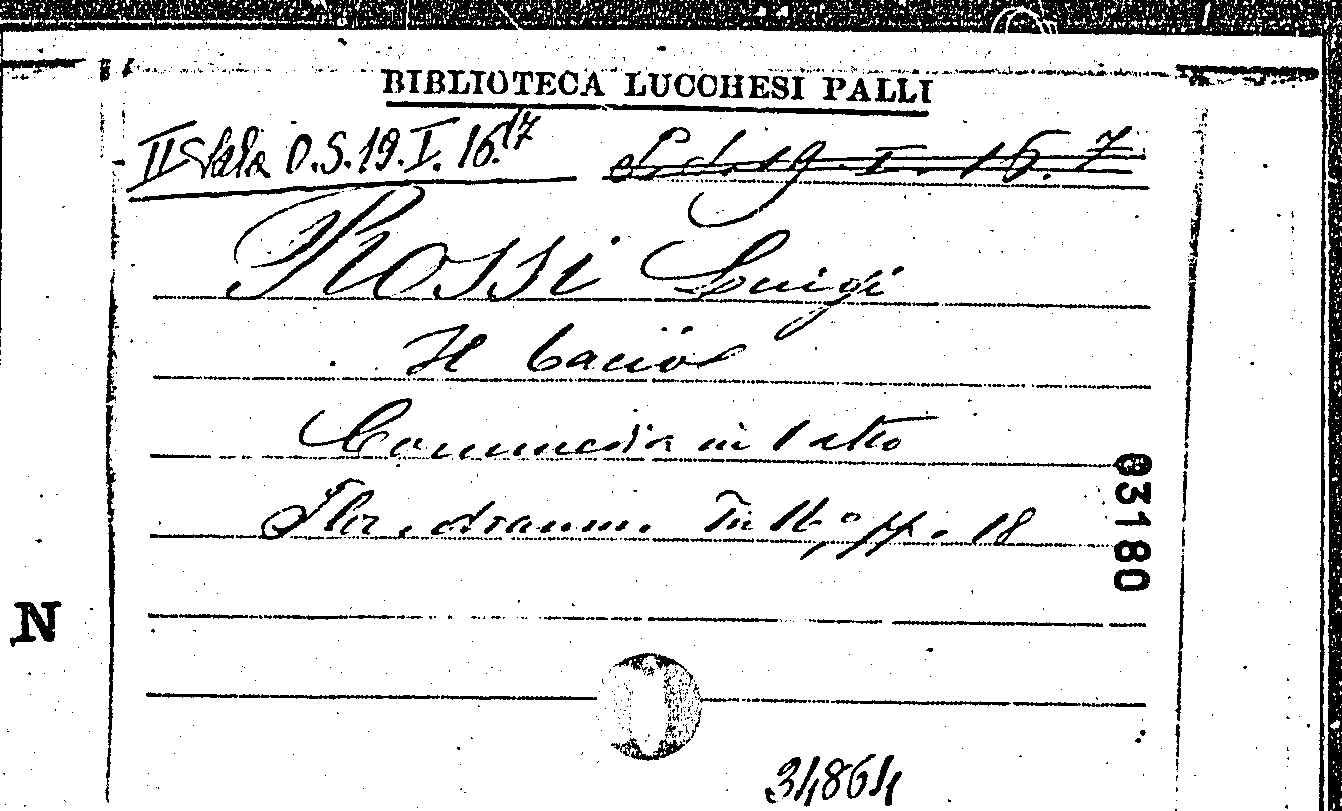 BIBLIOTECA LUCCHESI PALLI
II Sala O.S.19.I.16.17 S.d.19-I.16.7
Rossi Luigi
Il bacio
Commedia in 1 atto
Flor. dramm. In 16.° pp. 18
83180
N
34864